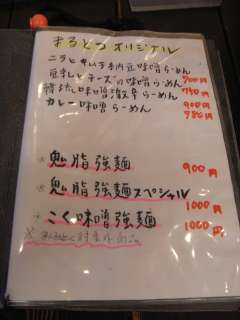 まるとっオリジナル
ニラとキムチ納豆味噌らーめん
豆乳とチーズの味噌らーめん 700円
味噌激辛らーめん 740円
900円
カレー味噌らーめん 780円
鬼脂強麺 900円
鬼脂強麺スペシャル 1000円
こく味噌強麺 1000円